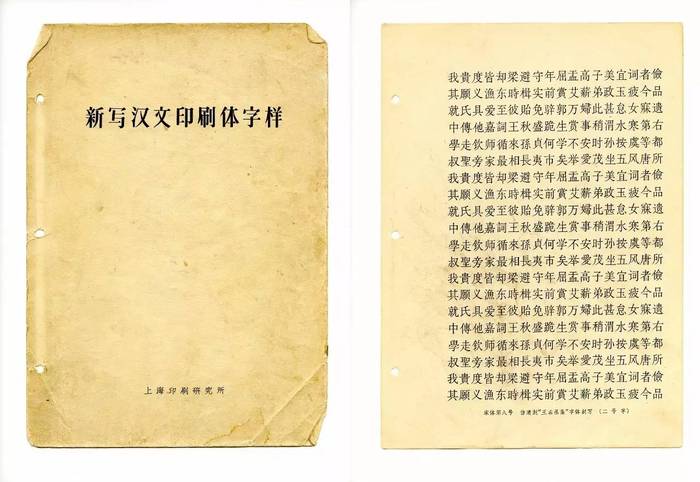 新写汉文印刷体字样
上海印刷研究所
我貴度皆却梁避守年屈盂高子美宜词者儉
其願义漁东時楫实前賞艾薪弟政玉疲今品
就氏具爱至彼貽免辤郭万婦此甚怠女寐遺
中傳他嘉詞王秋盛跪生賞事稍渭水寒第右
學走欽师循來孫貞何学不安时孙按虞等都
叔聖旁家最相長夷市矣举爱茂坐五风唐所
我貴度皆却梁避守年屈盂高子美宜词者儉
其願义漁东時楫实前賞艾薪弟政玉疲今品
就氏具爱至彼貽免辤郭万婦此甚怠女寐遺
中傳他嘉詞王秋盛跪生賞事稍渭水寒第右
學走欽师循來孫貞何学不安时孙按虞等都
叔聖旁家最相長夷市矣举爱茂坐五风唐所
我貴度皆却梁避守年屈盂高子美宜词者儉
其願义漁东時楫实前賞艾薪弟政玉疲今品
就氏具爱至彼貽免辤郭万婦此甚怠女寐遺
中傳他嘉詞王秋盛跪生賞事稍渭水寒第右
學走欽师循來孫貞何学不安时孙按虞等都
叔聖旁家最相長夷市矣举爱茂坐五风唐所
我貴度皆却梁避守年屈盂高子美宜词者儉
其願义漁东時楫实前賞艾薪弟政玉疲今品
宋体第八号 仿清刻"王右丞集"字体刻写 (二号字)